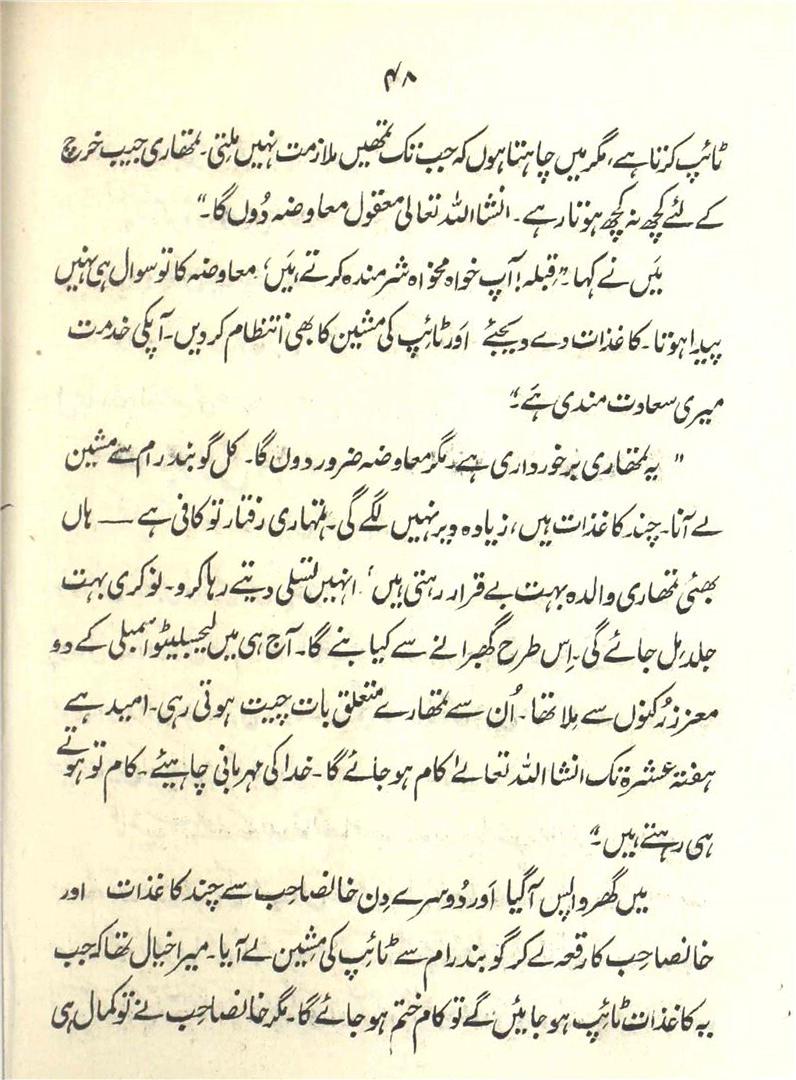 ۴۸
ٹائپ کرتا ہے، مگر میں چاہتا ہوں کہ جب تک تمھیں ملازمت نہیں ملتی۔ تمھاری جیب خرچ
کے لئے کچھ نہ کچھ ہوتا رہے۔ انشا اللہ تعالیٰ معقول معاوضہ دُوں گا۔“
مَیں نے کہا۔ ”قبلہ! آپ خواہ مخواہ شرمندہ کرتے ہَیں، معاوضہ کا تو سوال ہی نہیں
پیدا ہوتا۔ کاغذات دے دیجئے اَور ٹائپ کی مشین کا بھی انتظام کر دیں۔ آپکی خدمت
میری سعادت مندی ہَے۔“
” یہ تمھاری برخورداری ہے۔ مگر معاوضہ ضرور دوں گا۔ کل گوبند رام سے مشین
لے آنا۔ چند کاغذات ہیں، زیادہ دیر نہیں لگے گی۔ تمہاری رفتار تو کافی ہے — ہاں
بھئی تمھاری والدہ بہت بے قرار رہتی ہیں، انہیں تسلی دیتے رہا کرو۔ نوکری بہت
جلد مِل جائے گی۔ اِس طرح گھبرانے سے کیا بنے گا۔ آج ہی میں لیجسلیٹو اسمبلی کے دو
معزز رُکنوں سے مِلا تھا۔ اُن سے تمھارے متعلق بات چیت ہوتی رہی۔ امید ہے
ہفتہ عشرۃ تک انشا اللہ تعالےٰ کام ہو جائے گا۔ خدا کی مہربانی چاہیئے۔ کام تو ہوتے
ہی رہتے ہیں۔“
میں گھر واپس آگیا اَور دُوسرے دِن خانصاحِب سے چند کاغذات اور
خانصاحِب کا رقعہ لے کر گوبند رام سے ٹائپ کی مِشین لے آیا۔ میرا خیال تھا کہ جب
یہ کاغذات ٹائپ ہو جائیں گے تو کام ختم ہو جائے گا۔ مگر خانصاحِب نے تو کمال ہی